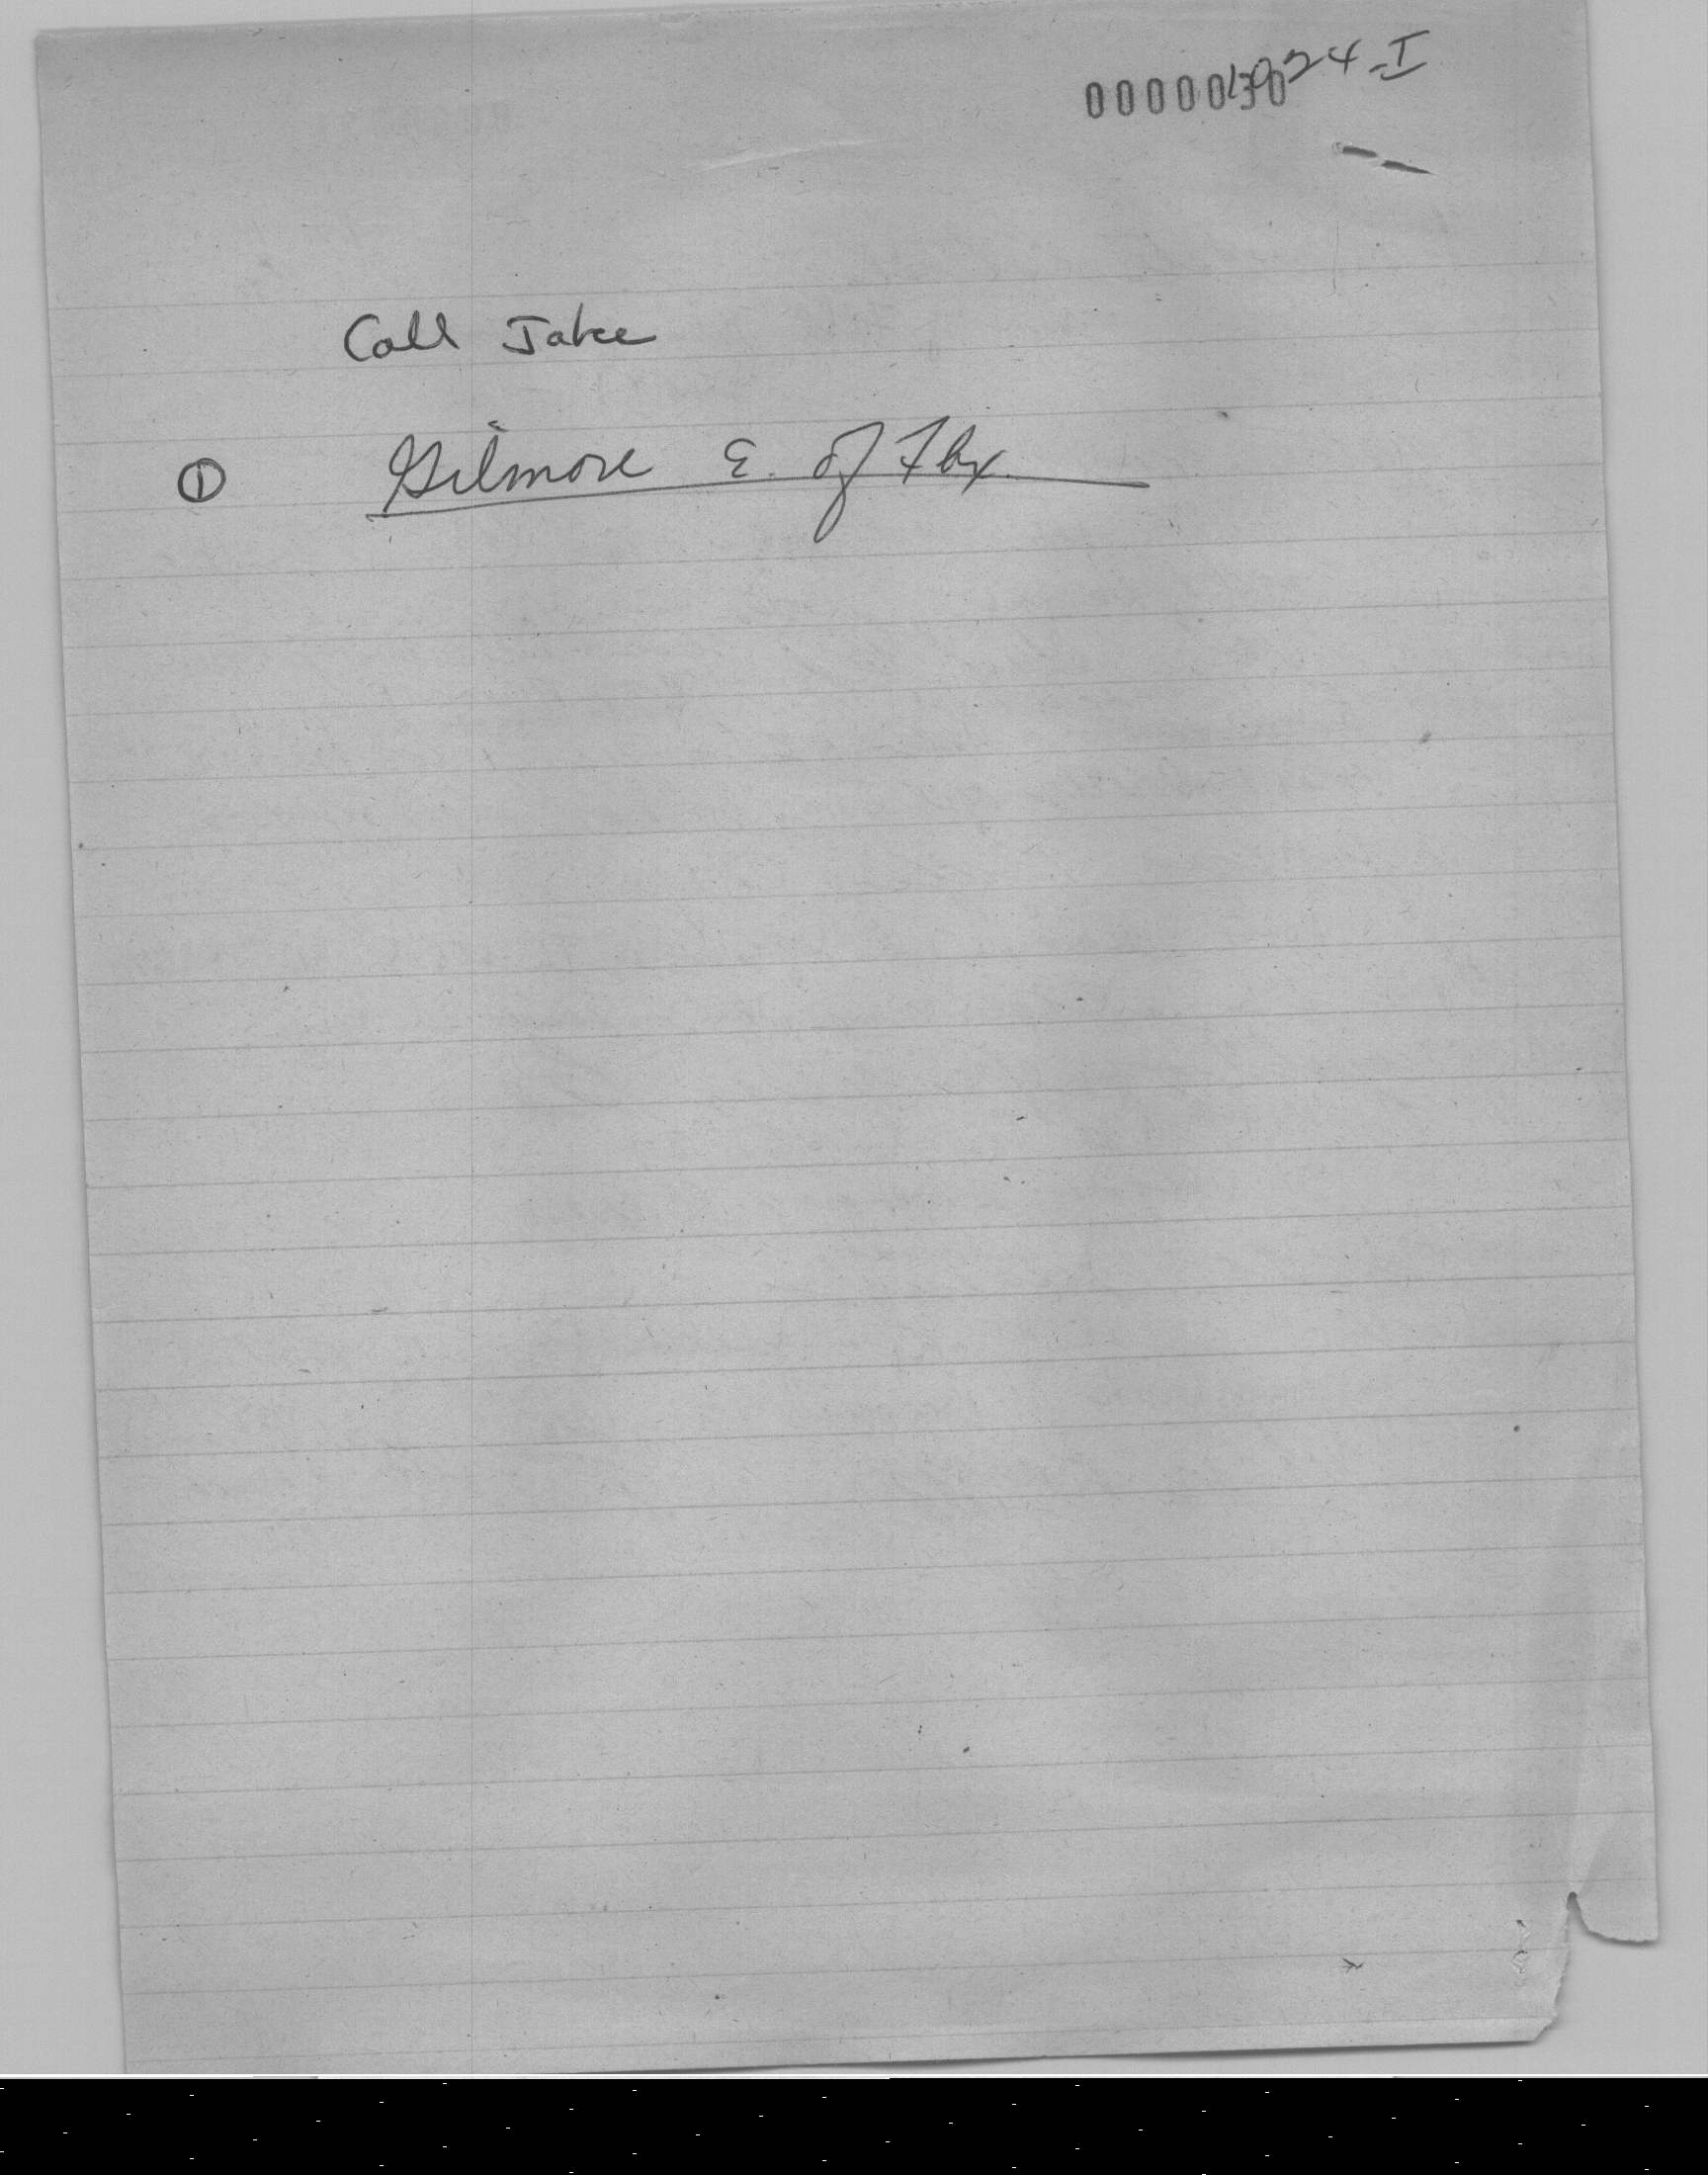 24-I
Call Jake
① Gilmore E. of Fbx.